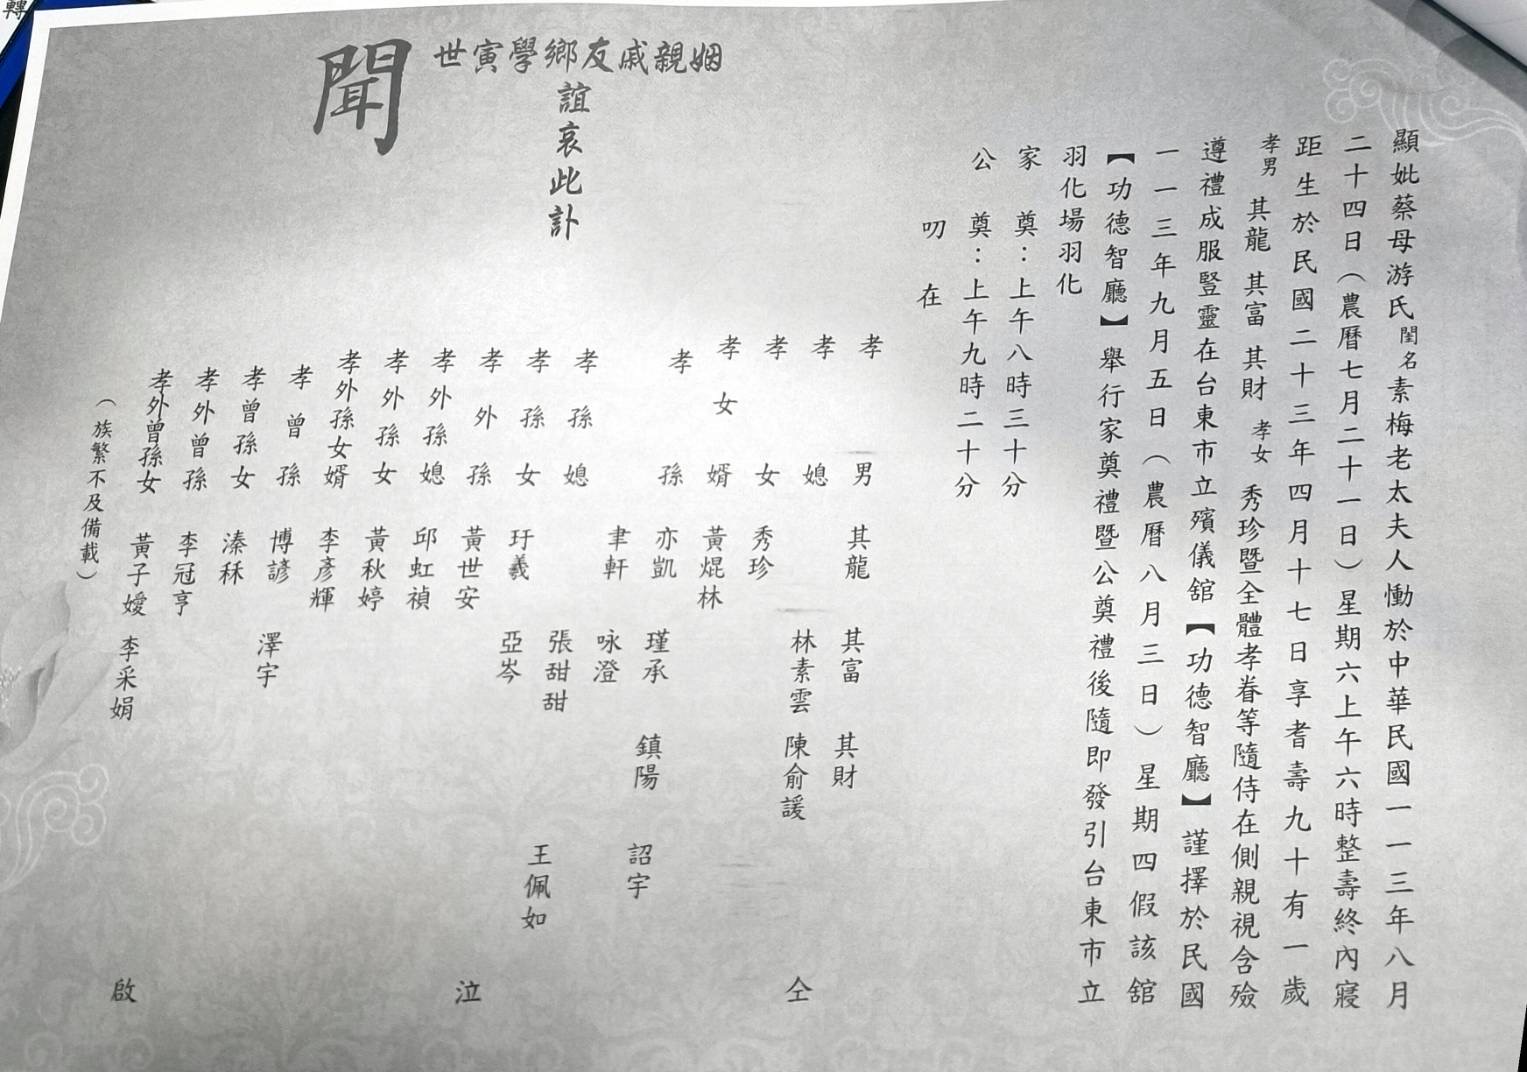 顯妣蔡母游氏閨名素梅老太夫人慟於中華民國一一三年八月
二十四日（農曆七月二十一日）星期六上午六時整壽終內寢
距生於民國二十三年四月十七日享耆壽九十有一歲
孝男 其龍 其富 其財 孝女 秀珍暨全體孝眷等隨侍在側親視含殮
遵禮成服豎靈在台東市立殯儀舘【功德智廳】謹擇於民國
一一三年九月五日（農曆八月三日）星期四假該舘
【功德智廳】舉行家奠禮暨公奠禮後隨即發引台東市立
羽化場羽化
家奠：上午八時三十分
公奠：上午九時二十分
叨在
姻親戚友鄉學寅世
誼哀此訃
聞
孝男 其龍 其富 其財
孝媳 林素雲 陳俞諼
孝女 秀珍
孝女婿 黃焜林
孝孫 亦凱 瑾承 鎮陽 詔宇
聿軒 咏澄
孝孫媳 張甜甜 王佩如
孝孫女 玗羲 亞岑
孝外孫 黃世安
孝外孫媳 邱虹禎
孝外孫女 黃秋婷
孝外孫女婿 李彥輝
孝曾孫 博諺 澤宇
孝曾孫女 溱秝
孝外曾孫 李冠亨
孝外曾孫女 黃子嬡 李采娟
（族繁不及備載）
仝 泣 啟
轉